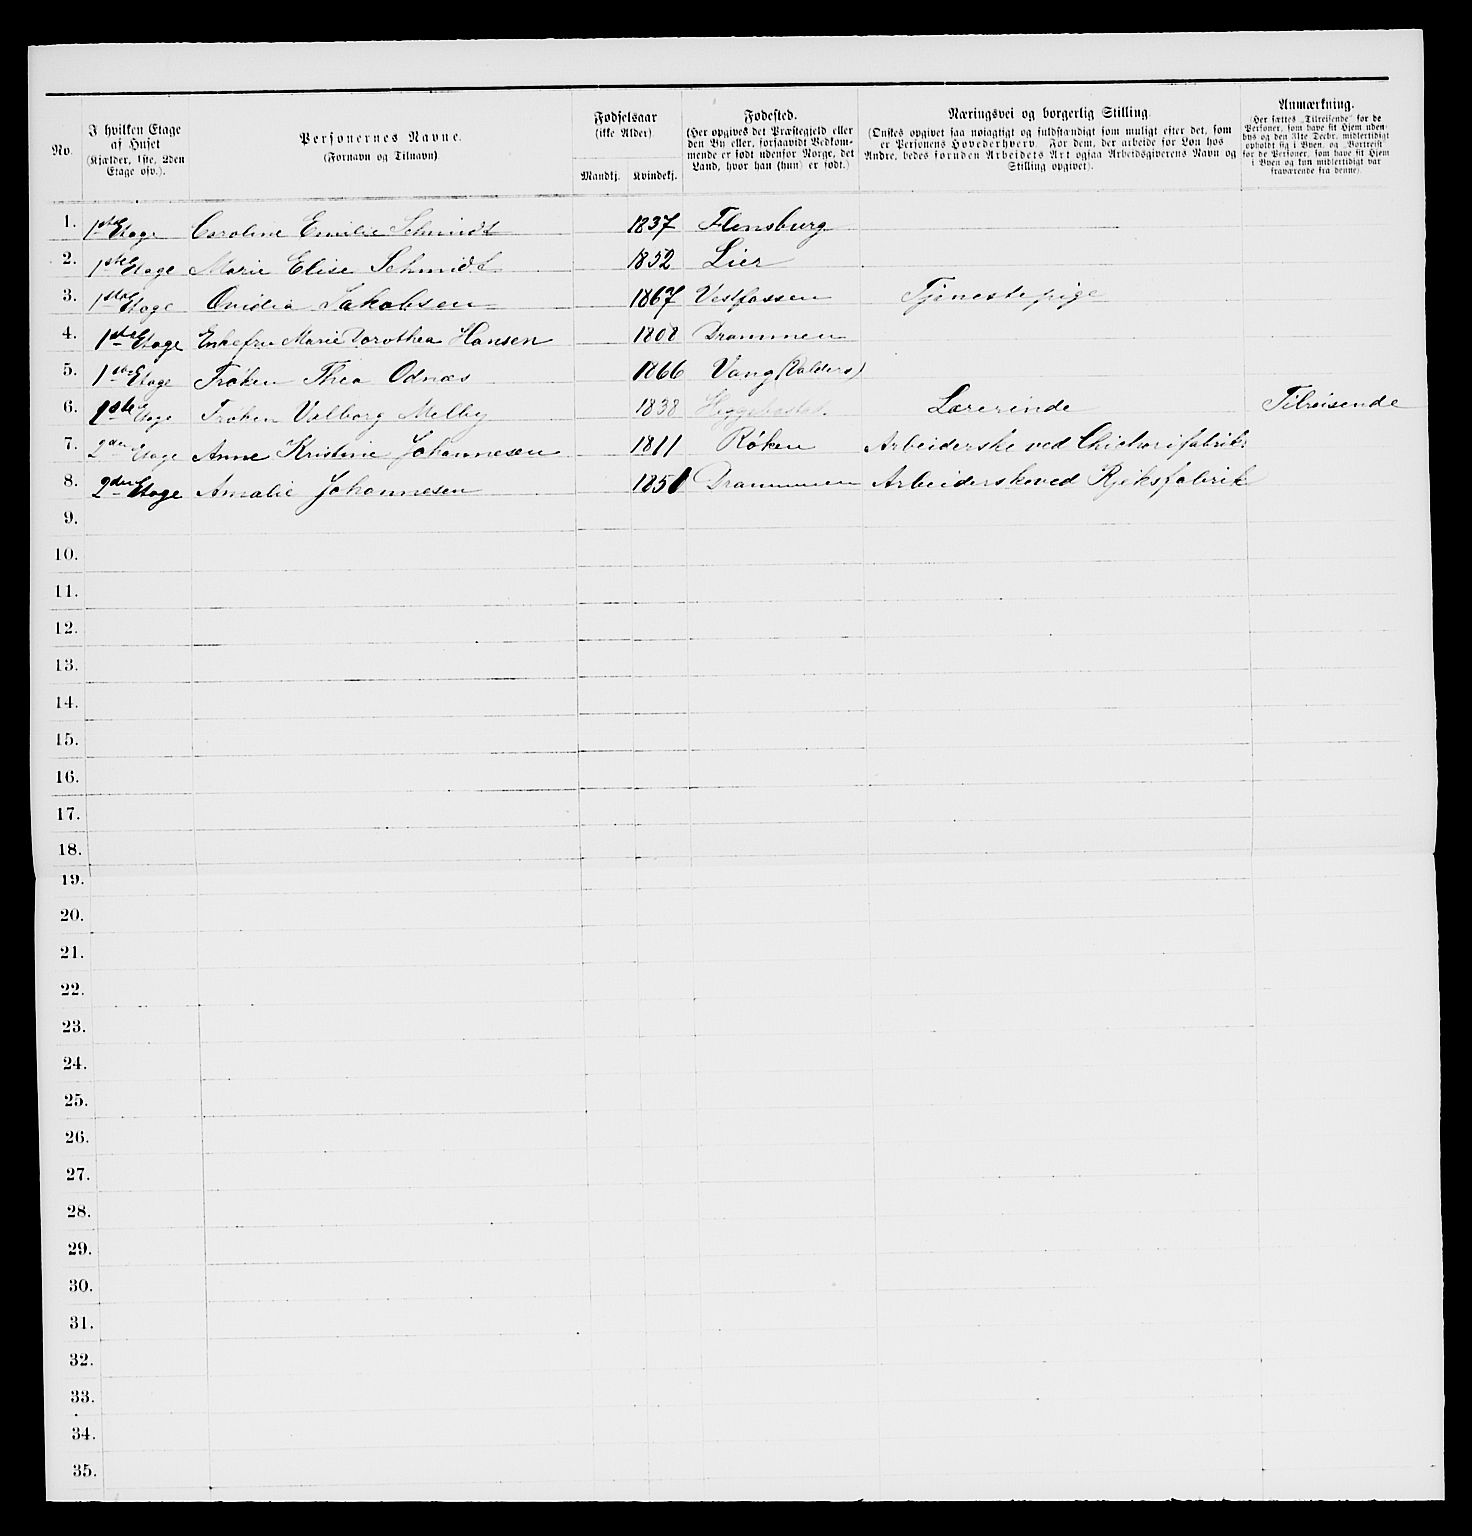 No. I hvilken Etage af Huset (Kjælder, 1ste, 2den Etage osv.). Personernes Navne. (Fornavn og Tilnavn) Fødselsaar (ikke Alder) Mandkj. Kvindekj. Fødested. (Her opgives det Præstegjeld eller den By eller, forsaavidt Vedkommende er født udenfor Norge, det Land, hvor han (hun) er født.) Næringsvei og borgerlig Stilling. (Ønskes opgivet saa nøiagtigt og fuldstændigt som muligt efter det, som er Personens Hovederhverv. For dem, der arbeide for Løn hos Andre, bedes foruden Arbeidets Art ogsaa Arbeidsgiverens Navn og Stilling opgivet). Anmærkning. (Her sættes „Tilreisende“ for de Personer, som have sit Hjem udenbys og den 31te Decbr. midlertidigt opholdt sig i Byen, og „Bortreist“ for de Personer, som have sit Hjem i Byen og kun midlertidigt var fraværende fra denne).
1. 1ste Etage Caroline Emilie Schmidt 1837 Flensburg
2. 1ste Etage Marie Elise Schmidt 1852 Lier
3. 1ste Etage Ovidia Jakobsen 1867 Vestfossen Tjenestepige
4. 1ste Etage Enkefru Marie Dorothea Hansen 1808 Drammen
5. 1ste Etage Frøken Thea Odnæs 1866 Vang (Valders)
6. 1ste Etage Frøken Valborg Melby 1838 Lærerinde Tilreisende
7. 2den Etage Anne Kristine Johannesen 1811 Røken Arbeiderske ved Chichorifabrik
8. 2den Etage Amalie Johannesen 1851 Drammen Arbeiderske ved Fyrstikfabrik
9.
10.
11.
12.
13.
14.
15.
16.
17.
18.
19.
20.
21.
22.
23.
24.
25.
26.
27.
28.
29.
30.
31.
32.
33.
34.
35.